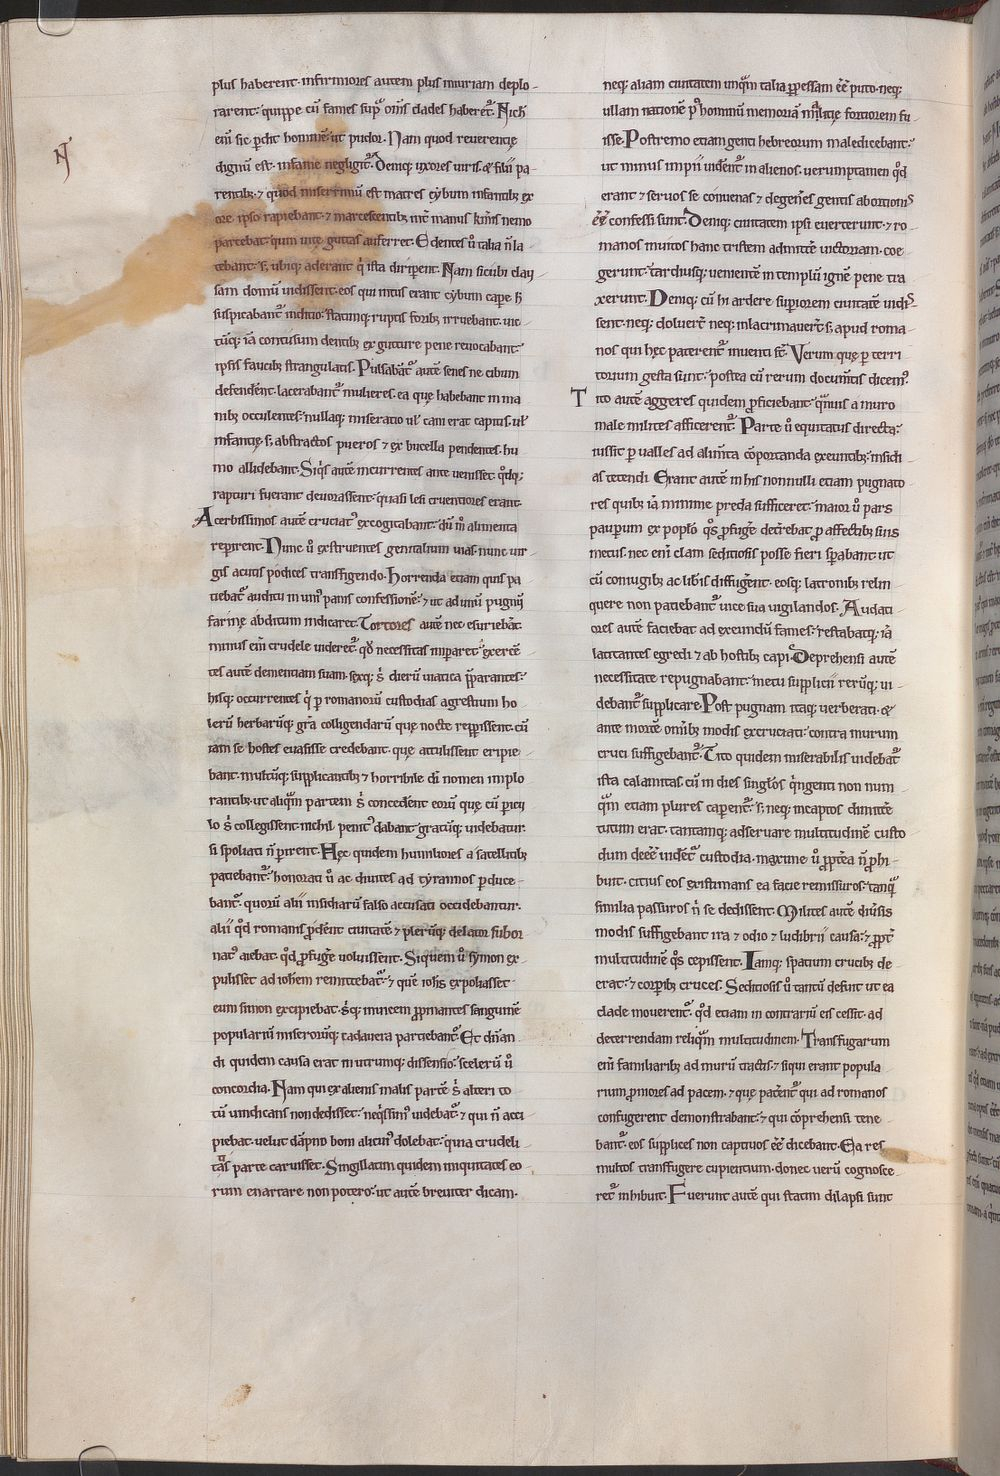 plus haberent· infirmiores autem plus iniuriam deplo-
rarent· quippe cū fames sup̄ om̄s clades haberet̄. Nich
em̄ sic p̄dit homine ut pudor. Nam quod reuerentię
dignū est· infame negligit̄. Deniq; uxores uiris & filii pa-
rentib; ⁊ quod miserrimū est matres cybum infantib; ex
ore ipso rapiebant· ⁊ marcescentib; int̄ manus kīnis nemo
parcebat· quin uitę guttas auferret. Edentes ū talia n̄ la
tebant· s; ubiq; aderant q̇ ista diriperent. Nam sicubi clau
sam domū uidissent· eos qui intus erant cybum cape h̄
suspicabant̄ inditio· statimq; ruptis forib; irruebant· uic
tūq; iā contusum dentib; ex gutture pene reuocabant·
ipsis faucib; strangulatis. Pulsabāt̄ autē senes ne cibum
defendent· lacerabant̄ mulieres· ea quę habebant in ma
nib; occulentes· nullaq; miseratio ul̄ cani erat capitis· ul̄
infantię· s; abstractos pueros ⁊ ex bucella pendentes· hu
mo allidebant. Siq̇s autē incurrentes ante uenisset· qd̄q;
rapturi fuerant deuorassent· quasi lesi cruentiores erant.
Acerbissimos autē cruciat᾽ excogitabant· dū m̄ alimenta
repirent. Nunc ū obstruentes genitalium uias· nunc uir
gis acutis podices transfigendo. Horrenda etiam quis pa
tiebat̄ auditu in uni᾽ panis confessionē· ⁊ ut ad unū pugnū
farinę abditum indicaret. Tortores autē nec esuriebāt·
minus em̄ crudele uideret̄· qd̄ necessitas imparet· exercē
tes autē dementiam suam· sexq; ṡ dierū uiatica p̄parantes·
hisq; occurrentes q̇ p romanorū custodias agrestium ho
lerū herbarūq; gr̄a colligendarū quę nocte repsissent· cū
iam se hostes euasisse credebant· quę attulissent eripie
bant· multūq; supplicantib; ⁊ horribile dī nomen implo
rantib; ut aliq̄m partem ṡ concedent eorū quę cū picu
lo ṡ collegissent· nichil penit᾽ dabant· gratūq; uidebatur
si spoliati n̄ pirent. Hęc quidem humiliores a satellitib;
patiebant̄· honorati ū ac diuites ad tyrannos pduce
bant̄· quorū alii insidiarū falso accusati occidebantur·
alii qd̄ romanis prodent ciuitatē· ⁊ plerūq; delator subor
nat᾽ aiebat· qd̄ profuge uoluissent. Siquem ū symon ex-
pulisset ad ioh̄em remittebat̄· ⁊ quē ioh̄s expoliasset
eum simon excipiebat· ṡq; inuicem propinantes sanguinē
popularium miserorūq; cadauera partiebant̄. Et dn̄an
di quidem causa erat in utrumq; dissensio· scelerū ū
concordia. Nam qui ex alienis malis partē ṡ alteri to
tū uindicans non dedisset· neq̇ssim᾽ uidebat̄· ⁊ qui n̄ acci
piebat· uelut dāpno boni alicui᾽ dolebat· quia crudeli
tatis parte caruisset. Singillatim quidem iniquitates eo-
rum enarrare non potero· ut autē breuiter dicam·
neq; aliam ciuitatem unq̄m talia perpessam ēē puto· neq;
ullam nationē p᾽ hominū memoriā militię fortiorem fu-
isse. Postremo etiam genti hebreorum maledicebant·
ut minus impii uident̄ in alienos· uerumptamen qd̄
erant· ⁊ seruos se· conuenas ⁊ degenes gentis abortionis
ēē confessi sunt. Deniq; ciuitatem ipsi euerterunt· ⁊ ro-
manos inuitos hanc tristem admittē uictoriam· coe
gerunt· tardiusq; uenientē in templū ignē pene tra
xerunt. Deniq; cū hi ardere supiorem ciuitatē uidis
sent· neq; doluerē neq; inlacrimauert̄· s; apud roma-
nos qui hęc paterent̄ inuenti st̄. Verum quę p terri
torium gesta sunt· postea cū rerum documtis dicem᾽.
Tito autē aggeres quidem proficiebant· q̄nuis a muro
male milites afficerent̄. Parte ū equitatus directa·
iussit p ualles ad alimta cōportanda exeuntib; insidi
as tetendi. Erant autē in his nonnulli etiam pugnato
res quib; iā minime preda sufficeret· maior ū pars
paupum ex poplo q̇s profuge deterrebat pro affectib; suis
metus· nec eni clam seditiosis posse fieri spabant· ut
cū coniugib; ac libis diffugent· eosq; latronib; relin
quere non patiebant̄ uice sua uigilandos. Audaci
ores autē faciebat ad exeundū fames· restabatq; iā
latitantes egredi ⁊ ab hostib; capi. Deprehensi autē
necessitate repugnabant· metu supplicii rerūq; ui-
debant̄ supplicare. Post pugnam itaq; uerberati· &
ante mortē omib; modis excruciati· contra murum
cruci suffigebant̄. Tito quidem miserabilis uidebat̄
ista calamitas· cū in dies singlos q̇ngenti non num-
q̄m etiam plures caperent̄· s; neq; incaptos dimittē
tutum erat· tantamq; adseruare multitudinē custo
dum deēē uidet̄ custodia· maxime ū propterea n̄ phi-
buit· citius eos existimans ea facie remissuros· tanq̄
similia passuros n̄ se dedissent. Milites autē diuisis
modis suffigebant ira ⁊ odio ⁊ ludibrii causa· ⁊ propt̄
multitudinē q̇s cepissent. Iamq; spatium crucib; de
erat· ⁊ corpib; cruces. Seditiosis ū tantū defuit ut ea
clade mouerent̄· qd̄ etiam in contrariū eis cessit· ad
deterrendam reliq̄m multitudinem. Transfugarum
em̄ familiarib; ad murū tractis· ⁊ siqui erant popula
rium proniores ad pacem· ⁊ quę patent̄ qui ad romanos
confugerent demonstrabant· ⁊ qui cōprehensi tene
bant̄· eos supplices non captiuos ēē dicebant. Ea res
multos transfugere cupientium· donec ueru cognosce
ret̄ inhibuit. Fuerunt autē qui statim dilapsi sunt